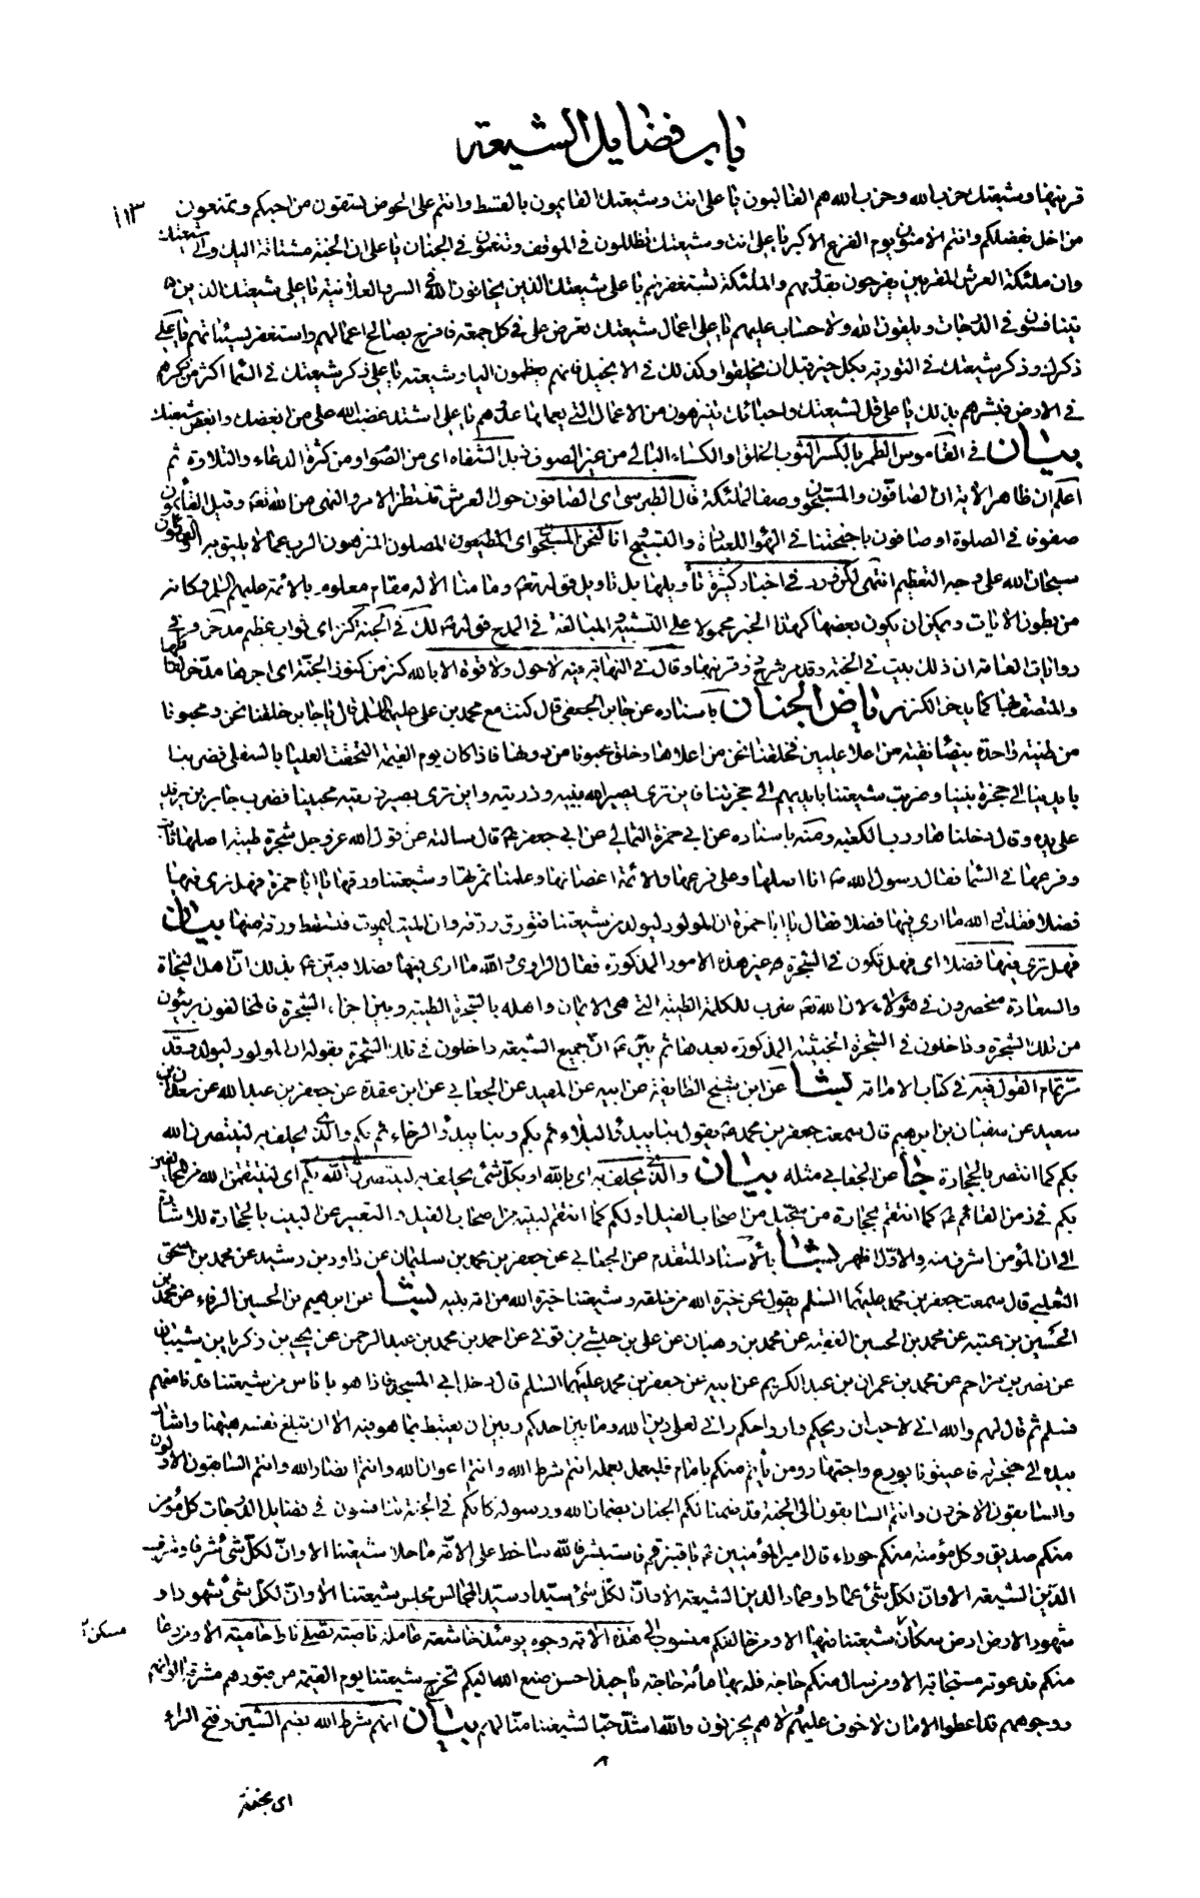 باب فضايل الشيعة
١١٣
قرنيها وشيعتك حزب الله وحزب الله هم الغالبون يا علي انت وشيعتك القايمون بالقسط وانتم على الحوض تسقون من احبكم وتمنعون
من اخل بفضلكم وانتم الامنون يوم الفزع الاكبر يا علي انت وشيعتك تظللون في الموقف وتنعمون في الجنان يا علي ان الجنة مشتاقة اليك والى شيعتك
وان ملئكة العرش المقربين يفرحون بقدومهم والملئكة تستغفر لهم يا علي شيعتك الذين يخافون الله في السر والعلانية يا علي شيعتك الذين
يتنافسون في الدرجات ويلقون الله ولا حساب عليهم يا علي اعمال شيعتك تعرض علي في كل جمعة فافرح بصالح اعمالهم واستغفر لسيئاتهم يا علي
ذكرك وذكر شيعتك في التورية بكل خير قبل ان يخلقوا وكذلك في الانجيل فانهم يعظمون اليا وشيعته يا علي ذكر شيعتك في السما اكثر من ذكرهم
في الارض فبشرهم بذلك يا علي قل لشيعتك واحبائك يتنزهون من الاعمال التي يعملها عدوهم يا علي اشتد غضب الله على من ابغضك وابغض شيعتك
بيان في القاموس الطمر بالكسر الثوب الخلق او الكساء البالي من غير الصوف ذبل الشفاه اي من الصوم او من كثرة الدعاء والتلاوة ثم
اعلم ان ظاهر الاية ان الصافون والمسبحون وصف الملئكة قال الطبرسي اي الصافون حول العرش ننتظر الامر والنهي من الله تعه وقيل القائمون
صفوف في الصلوة او صافون باجنحتنا في الهواء للعبادة والتسبيح انا لنحن المسبحون اي المطيعون المصلون المنزهون الرب عما لا يليق به والقائلون
سبحان الله على وجه التعظيم انتهى لكن ورد في اخبار كثيرة تأويلها بل تاويل قوله تعه وما منا الا له مقام معلوم بالائمة عليهم السلم فكانه
من بطون الايات ويمكن ان يكون بعضها كهذا الخبر محمولا على التشبيه والمبالغة في المدح قوله لك في الجنة كنز اي ثواب عظيم مدخر وفي
روايات العامة ان ذلك بيت في الجنة وقد مر شرح ذو قرنيها وقال في النهاية فيه لا حول ولا قوة الا بالله كنز من كنوز الجنة اي اجرها مدخر لقائلها
والمتصف بها كما يدخر الكنز رياض الجنان باسناده عن جابر الجعفي قال كنت مع محمد بن علي عليهما السلم قال يا جابر خلقنا نحن ومحبونا
من طينة واحدة بيضا نقية من اعلا عليين فخلقنا نحن من اعلاها وخلق محبونا من دونها فاذا كان يوم القيمة التحقت العليا بالسفلى فضربنا
بايدينا الى حجزة نبينا وضربت شيعتنا بايديهم الى حجزتنا فاين ترى يصير الله نبيه وذريته واين ترى يصير ذريته محبينا فضرب جابر بن يزيد
على يده وقال دخلنا ها ورب الكعبة ومنه باسناده عن ابي حمزة الثمالي عن ابي جعفر ع قال سالته عن قول الله عز وجل شجرة طيبة اصلها ثابت
وفرعها في السما فقال رسول الله ص انا اصلها وعلي فرعها والائمة اغصانها وعلمنا ثمرتها وشيعتنا ورقها يا ابا حمزة فهل ترى فيها
فضلا فقلت لا والله ما ارى فيها فضلا فقال يا ابا حمزة ان المولود ليولد من شيعتنا فتورق ورقة وان الميت ليموت فتسقط ورقة منها بيان
فهل ترى فيها فضلا اي فهل تكون في الشجرة ص غير هذه الامور المذكورة فقال الراوي والله ما ارى فيها فضلا فبين ع بذلك ان اهل النجاة
والسعادة منحصرون في هؤلاء لان الله تعه ضرب للكلمة الطيبة التي هي الايمان واهله بالشجرة الطيبة وبين اجزاء الشجرة فالمخالفون بريئون
من تلك الشجرة وداخلون في الشجرة الخبيثة المذكورة بعدها ثم بين ع ان جميع الشيعة داخلون في تلك الشجرة بقوله ان المولود ليولد وقد
مر تمام القول فيه في كتاب الامامة بشا عن ابن شيخ الطايفة عن ابيه عن المفيد عن الجعابي عن ابن عقدة عن جعفر بن عبد الله عن سعدان بن
سعيد عن سفيان بن ابرهيم قال سمعت جعفر بن محمد ع يقول بنا يبدء البلاء ثم بكم وبنا يبدء الرخاء ثم بكم والذي يحلف به لينتصرن الله
بكم كما انتصر بالحجارة جا عن الجعابي مثله بيان والذي يحلف به اي بالله او بكل شئ يحلف به لينتصرن الله بكم اي لينتقمن الله من المخالفين
بكم في زمن القائم ع كما انتقم بحجارة من سجيل من اصحاب الفيل او لكم كما انتقم لبيته من اصحاب الفيل والتعبير عن البيت بالحجارة للاشارة
الى ان المؤمن اشرف منه والاول اظهر بشا بالاسناد المتقدم عن الجعابي عن جعفر بن محمد بن سليمان عن داود بن رشيد عن محمد بن اسحق
الثعلبي قال سمعت جعفر بن محمد عليهما السلم يقول نحن خيرة الله من خلقه وشيعتنا خيرة الله من امة نبيه بشا عن ابرهيم بن الحسين الرفاء عن محمد بن
الحسين بن عتبة عن محمد بن الحسين الفقيه عن محمد بن وهبان عن علي بن حبشي بن قوني عن احمد بن محمد بن عبد الرحمن عن يحيى بن زكريا بن شيبان
عن نصر بن مزاحم عن محمد بن عمران بن عبد الكريم عن ابيه عن جعفر بن محمد عليهما السلم قال دخل ابي المسجد فاذا هو باناس من شيعتنا فدنا منهم
فسلم ثم قال لهم والله اني لاحب ريحكم وارواحكم واني لعلى دين الله وما بين احدكم وبين ان يغتبط بما هو فيه الا ان تبلغ نفسه ههنا واشار
بيده الى حنجرته فاعينونا بورع واجتهاد ومن يأتم منكم بامام فليعمل بعمله انتم شرط الله وانتم اعوان الله وانتم انصار الله وانتم السابقون الاولون
والسابقون الاخرون وانتم السابقون الى الجنة قد ضمنا لكم الجنان بضمان الله ورسوله كانكم في الجنة تنافسون في فضايل الدرجات كل مؤمن
منكم صديق وكل مؤمنة منكم حوراء قال امير المؤمنين ع يا قنبر قم فاستبشر فالله ساخط على الامة ما خلا شيعتنا الا وان لكل شئ شرفا وشرف
الدين الشيعة الا وان لكل شئ عمادا وعماد الدين الشيعة الا وان لكل شئ سيدا وسيد المجالس مجلس شيعتنا الا وان لكل شئ شهودا و
شهود الارض ارض سكان شيعتنا فيها الا ومن خالفكم منسوب الى هذه الاية وجوه يومئذ خاشعة عاملة ناصبة تصلى نارا حامية الا ومن دعا
مسكن
منكم فدعوته مستجابة الا ومن سال منكم حاجة فله بها مائة حاجة يا حبذا حسن صنع الله اليكم تخرج شيعتنا يوم القيمة من قبورهم مشرقة الوانهم
ووجوههم قد اعطوا الامان لا خوف عليهم ولا هم يحزنون والله اشد حبا لشيعتنا منا لهم بيان انتم شرط الله بضم الشين وفتح الراء
اي نخبته